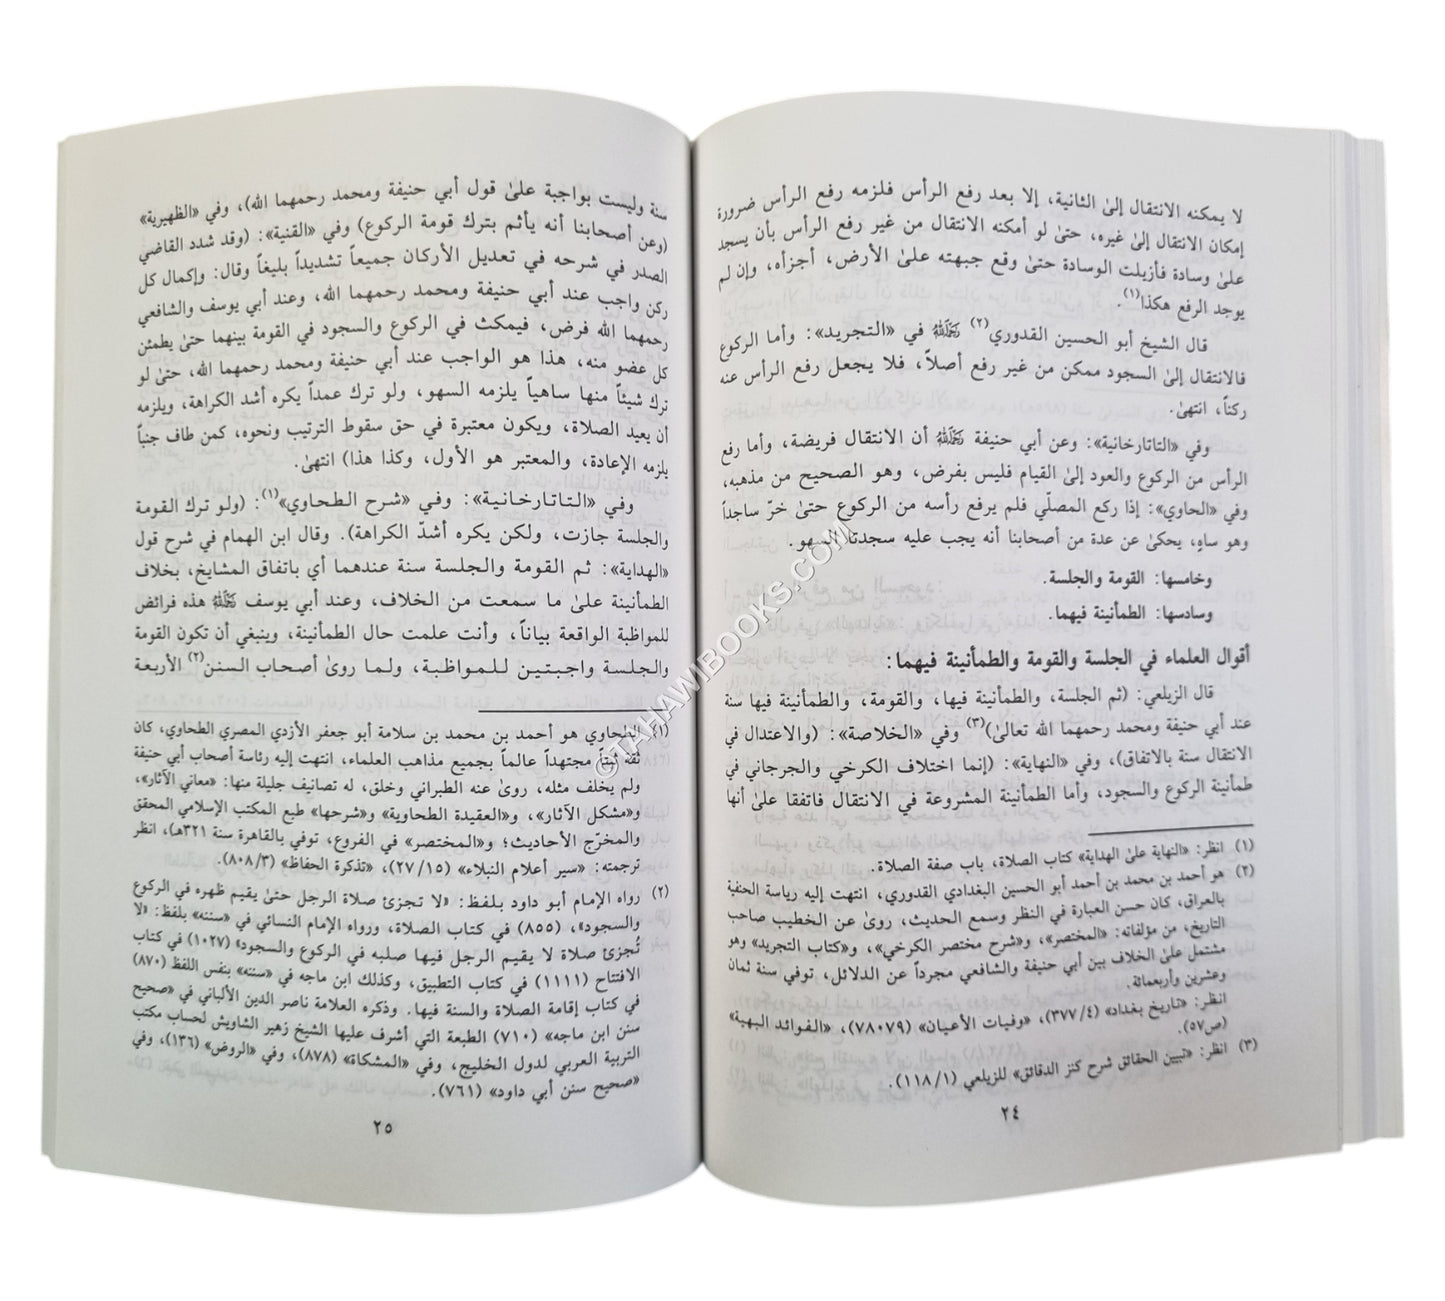 لا يمكنه الانتقال إلىٰ الثانية، إلا بعد رفع الرأس فلزمه رفع الرأس ضرورة
إمكان الانتقال إلىٰ غيره، حتىٰ لو أمكنه الانتقال من غير رفع الرأس بأن يسجد
علىٰ وسادة فأزيلت الوسادة حتىٰ وقع جبهته علىٰ الأرض، أجزأه، وإن لم
يوجد الرفع هكذا(١).
قال الشيخ أبو الحسين القدوري(٢) رَحِمَهُ اللهُ في «التجريد»: وأما الركوع
فالانتقال إلىٰ السجود ممكن من غير رفع أصلاً، فلا يجعل رفع الرأس عنه
ركناً، انتهىٰ.
وفي «التاتارخانية»: وعن أبي حنيفة رَحِمَهُ اللهُ أن الانتقال فريضة، وأما رفع
الرأس من الركوع والعود إلىٰ القيام فليس بفرض، وهو الصحيح من مذهبه،
وفي «الحاوي»: إذا ركع المصلّي فلم يرفع رأسه من الركوع حتىٰ خرّ ساجداً
وهو ساهٍ، يحكىٰ عن عدة من أصحابنا أنه يجب عليه سجدتا السهو.
وخامسها: القومة والجلسة.
وسادسها: الطمأنينة فيهما.
أقوال العلماء في الجلسة والقومة والطمأنينة فيهما:
قال الزيلعي: (ثم الجلسة، والطمأنينة فيها، والقومة، والطمأنينة فيها سنة
عند أبي حنيفة ومحمد رحمهما الله تعالىٰ)(٣) وفي «الخلاصة»: (والاعتدال في
الانتقال سنة بالاتفاق)، وفي «النهاية»: (إنما اختلاف الكرخي والجرجاني في
طمأنينة الركوع والسجود، وأما الطمأنينة المشروعة في الانتقال فاتفقا علىٰ أنها
(١) انظر: «النهاية علىٰ الهداية» كتاب الصلاة، باب صفة الصلاة.
(٢) هو أحمد بن محمد بن أحمد أبو الحسين البغدادي القدوري، انتهت إليه رياسة الحنفية
بالعراق، كان حسن العبارة في النظر وسمع الحديث، روىٰ عن الخطيب صاحب
التاريخ، من مؤلفاته: «المختصر»، و«شرح مختصر الكرخي»، و«كتاب التجريد» وهو
مشتمل علىٰ الخلاف بين أبي حنيفة والشافعي مجرداً عن الدلائل، توفي سنة ثمان
وعشرين وأربعمائة.
انظر: «تاريخ بغداد» (٣٧٧/٤)، «وفيات الأعيان» (٧٨٠٧٩)، «الفوائد البهية»
(ص٥٧).
(٣) انظر: «تبيين الحقائق شرح كنز الدقائق» للزيلعي (١١٨/١).
٢٤
سنة وليست بواجبة علىٰ قول أبي حنيفة ومحمد رحمهما الله)، وفي «الظهيرية»
(وعن أصحابنا أنه يأثم بترك قومة الركوع) وفي «القنية»: (وقد شدد القاضي
الصدر في شرحه في تعديل الأركان جميعاً تشديداً بليغاً وقال: وإكمال كل
ركن واجب عند أبي حنيفة ومحمد رحمهما الله، وعند أبي يوسف والشافعي
رحمهما الله فرض، فيمكث في الركوع والسجود في القومة بينهما حتىٰ يطمئن
كل عضو منه، هذا هو الواجب عند أبي حنيفة ومحمد رحمهما الله، حتىٰ لو
ترك شيئاً منها ساهياً يلزمه السهو، ولو ترك عمداً يكره أشد الكراهة، ويلزمه
أن يعيد الصلاة، ويكون معتبرة في حق سقوط الترتيب ونحوه، كمن طاف جنباً
يلزمه الإعادة، والمعتبر هو الأول، وكذا هذا) انتهىٰ.
وفي «التاتارخانية»: وفي «شرح الطحاوي»(١): (ولو ترك القومة
والجلسة جازت، ولكن يكره أشدّ الكراهة). وقال ابن الهمام في شرح قول
«الهداية»: ثم القومة والجلسة سنة عندهما أي باتفاق المشايخ، بخلاف
الطمأنينة علىٰ ما سمعت من الخلاف، وعند أبي يوسف رَحِمَهُ اللهُ هذه فرائض
للمواظبة الواقعة بياناً، وأنت علمت حال الطمأنينة، وينبغي أن تكون القومة
والجلسة واجبتين للمواظبة، ولما روىٰ أصحاب السنن(٢) الأربعة
(١) الطحاوي هو أحمد بن محمد بن سلامة أبو جعفر الأزدي المصري الطحاوي، كان
ثقة ثبتاً مجتهداً عالماً بجميع مذاهب العلماء، انتهت إليه رئاسة أصحاب أبي حنيفة
ولم يخلف مثله، روىٰ عنه الطبراني وخلق، له تصانيف جليلة منها: «معاني الآثار»،
و«مشكل الآثار»، و«العقيدة الطحاوية» و«شرحها» طبع المكتب الإسلامي المحقق
والمخرّج الأحاديث؛ و«المختصر» في الفروع، توفي بالقاهرة سنة ٣٢١هـ، انظر
ترجمته: «سير أعلام النبلاء» (٢٧/١٥)، «تذكرة الحفاظ» (٨٠٨/٣).
(٢) رواه الإمام أبو داود بلفظ: «لا تجزئ صلاة الرجل حتىٰ يقيم ظهره في الركوع
والسجود»، (٨٥٥) في كتاب الصلاة، ورواه الإمام النسائي في «سننه» بلفظ: «لا
تُجزئ صلاة لا يقيم الرجل فيها صلبه في الركوع والسجود» (١٠٢٧) في كتاب
الافتتاح (١١١١) في كتاب التطبيق، وكذلك ابن ماجه في «سننه» بنفس اللفظ (٨٧٠)
في كتاب إقامة الصلاة والسنة فيها. وذكره العلامة ناصر الدين الألباني في «صحيح
سنن ابن ماجه» (٧١٠) الطبعة التي أشرف عليها الشيخ زهير الشاويش لحساب مكتب
التربية العربي لدول الخليج، وفي «المشكاة» (٨٧٨)، وفي «الروض» (١٣٦)، وفي
«صحيح سنن أبي داود» (٧٦١).
٢٥
© TAHAWIBOOKS.COM